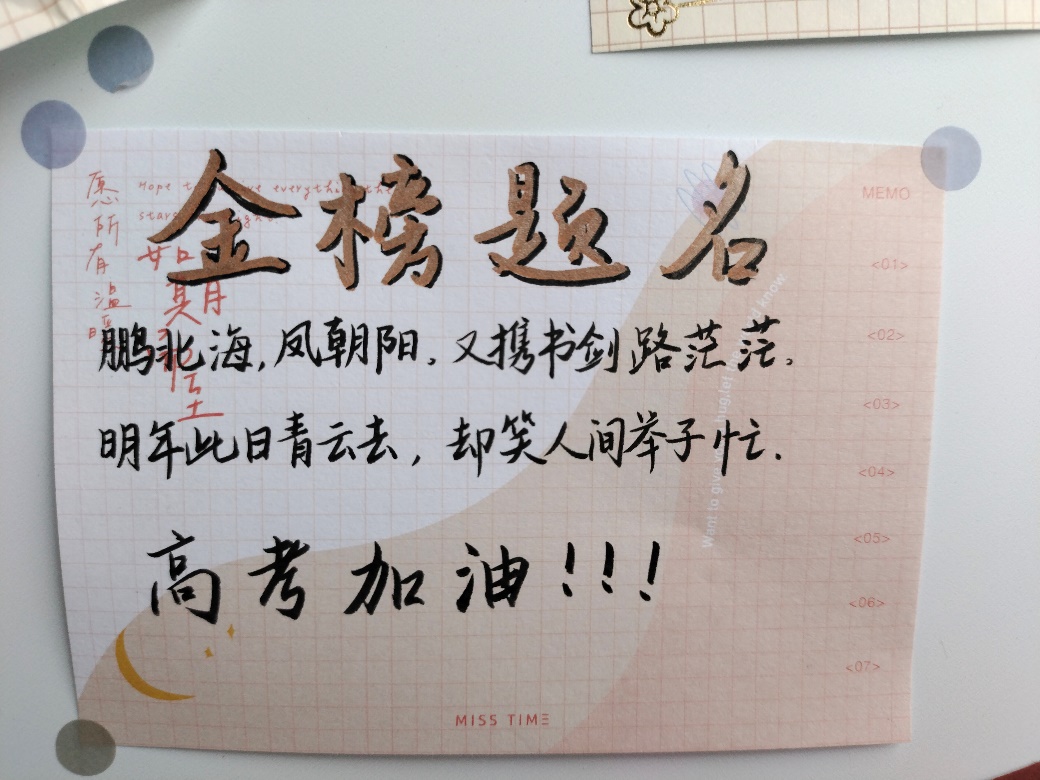 金榜题名
鹏北海,凤朝阳.又携书剑路茫茫.
明年此日青云去,却笑人间举子忙.
高考加油!!!
愿所有温暖
如期
Hope
everything
MEMO
<01>
<02>
<03>
<04>
<05>
<06>
<07>
Want to give
know
MISS TIME